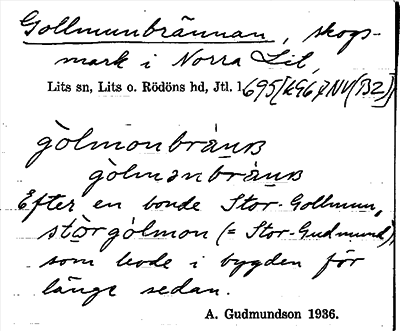 Gollmunbrännan, skogs-
mark i Norra Lit,
Lits sn, Lits o. Rödöns hd, Jtl. 1695[k967NV(B2)]
gòlmonbrànɴ
gòlmənbrànɴ
Efter en bonde Stor-Gollmun,
stòrgòlmon (= Stor-Gudmund),
som levde i bygden för
länge sedan.
A. Gudmundson 1936.